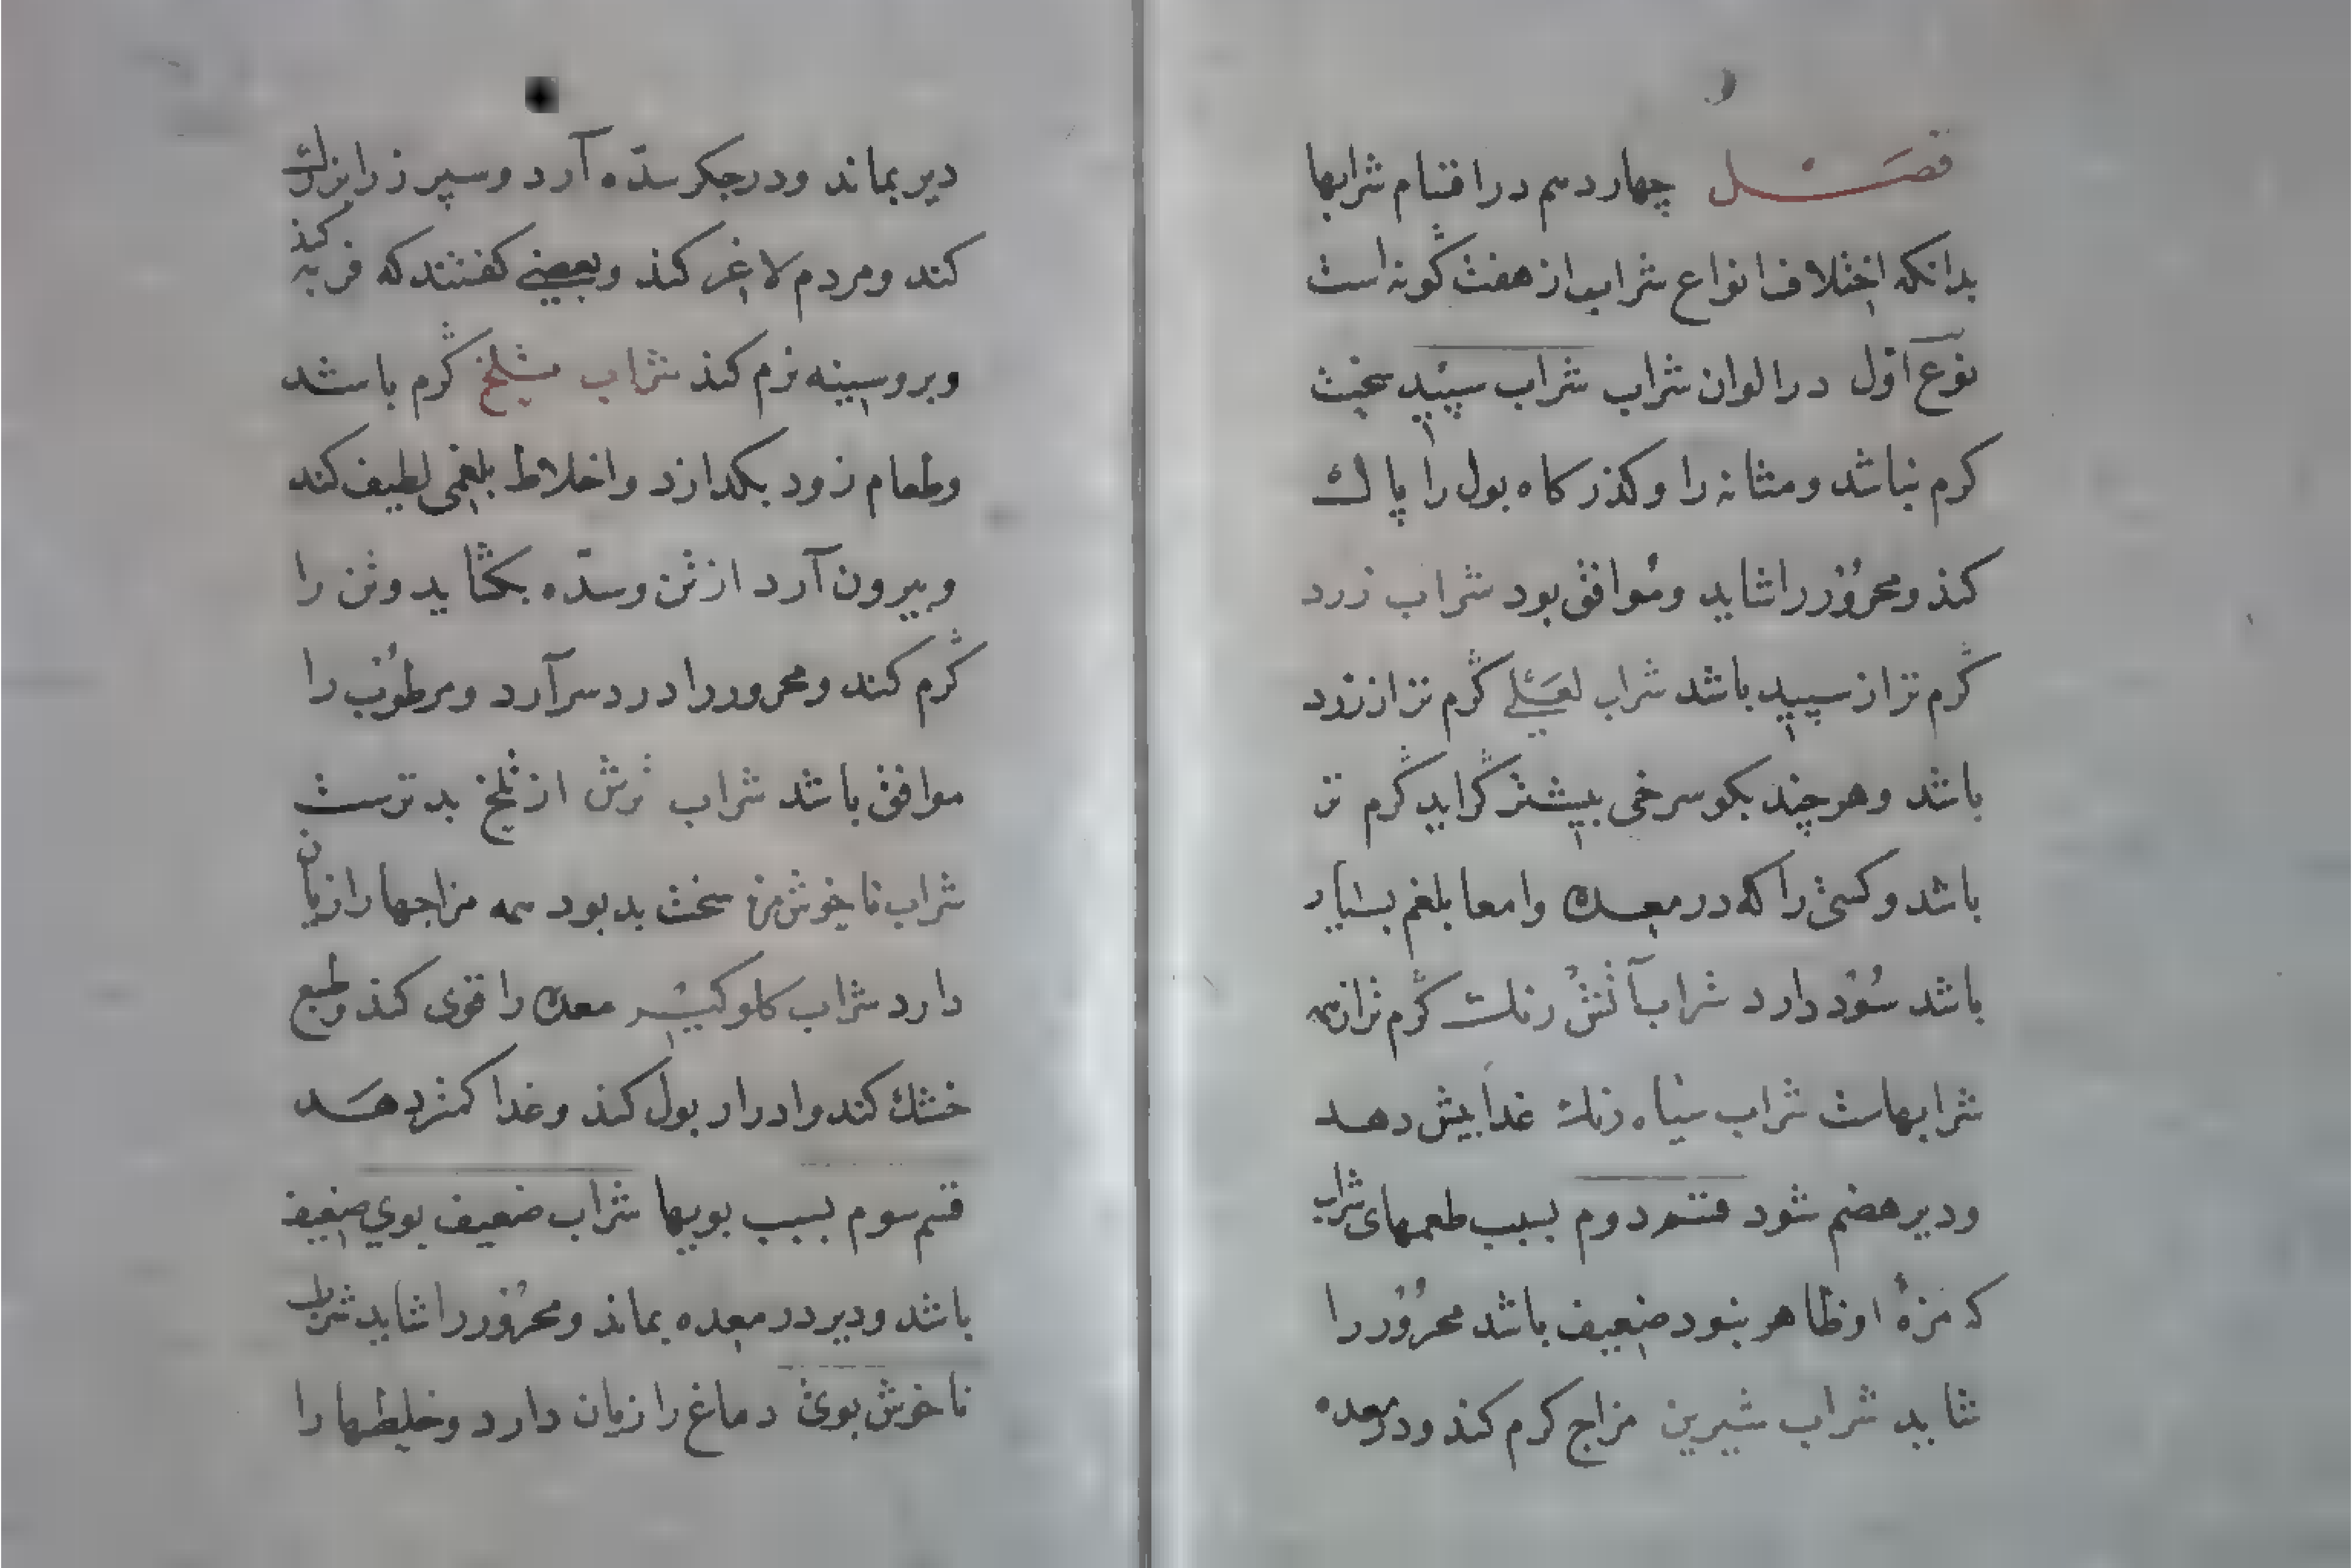 فصل چهاردهم در اقسام شرابها
بدانکه اختلاف انواع شراب از هفت گونه است
نوع اول در الوان شراب شراب سپید سخت
کرم نباشد ومثانه را وکذرکاه بول را پاك
کنذ ومحرور را شاید وموافق بود شراب زرد
گرم تر از سپید باشد شراب لعلی گرم تر از زرد
باشد وهرچند بکو سرخی بیشتر گراید گرم تر
باشد وکسی را که در معده وامعا بلغم بسیار
باشد سود دارد شراب آتش رنك گرم تر از همه
شرابهاست شراب سیاه رنك غدا بیش دهد
ودیر هضم شود قسم دوم بسبب طعمهای شراب
که مزۀ او ظاهر نبود ضعیف باشد محرور را
شاید شراب شیرین مزاج کرم کند ودر معده
دیر بماند ودر جکر سدّه آرد وسپرز را بزرك
کند ومردم لاغر کنذ وبعضی کفتند که فربه کنذ
وبر وسینه نرم کنذ شراب تلخ گرم باشد
وطعام زود بکدازد واخلاط بلغمی لطیف کند
وبیرون آرد از تن وسدّه بکشاید وتن را
گرم کند ومحرور را درد سر آرد ومرطوب را
موافق باشد شراب ترش از تلخ بدترست
شراب ناخوش مزه سخت بد بود همه مزاجها را زیان
دارد شراب کلوکیر معده را قوی کنذ وطبع
خشك کند وادرار بول کنذ وغدا کمتر دهد
قسم سوم بسبب بویها شراب ضعیف بوی ضعیف
باشد ودیر در معده بماند ومحرور را شاید شراب
ناخوش بوی دماغ را زیان دارد وخلیطها را